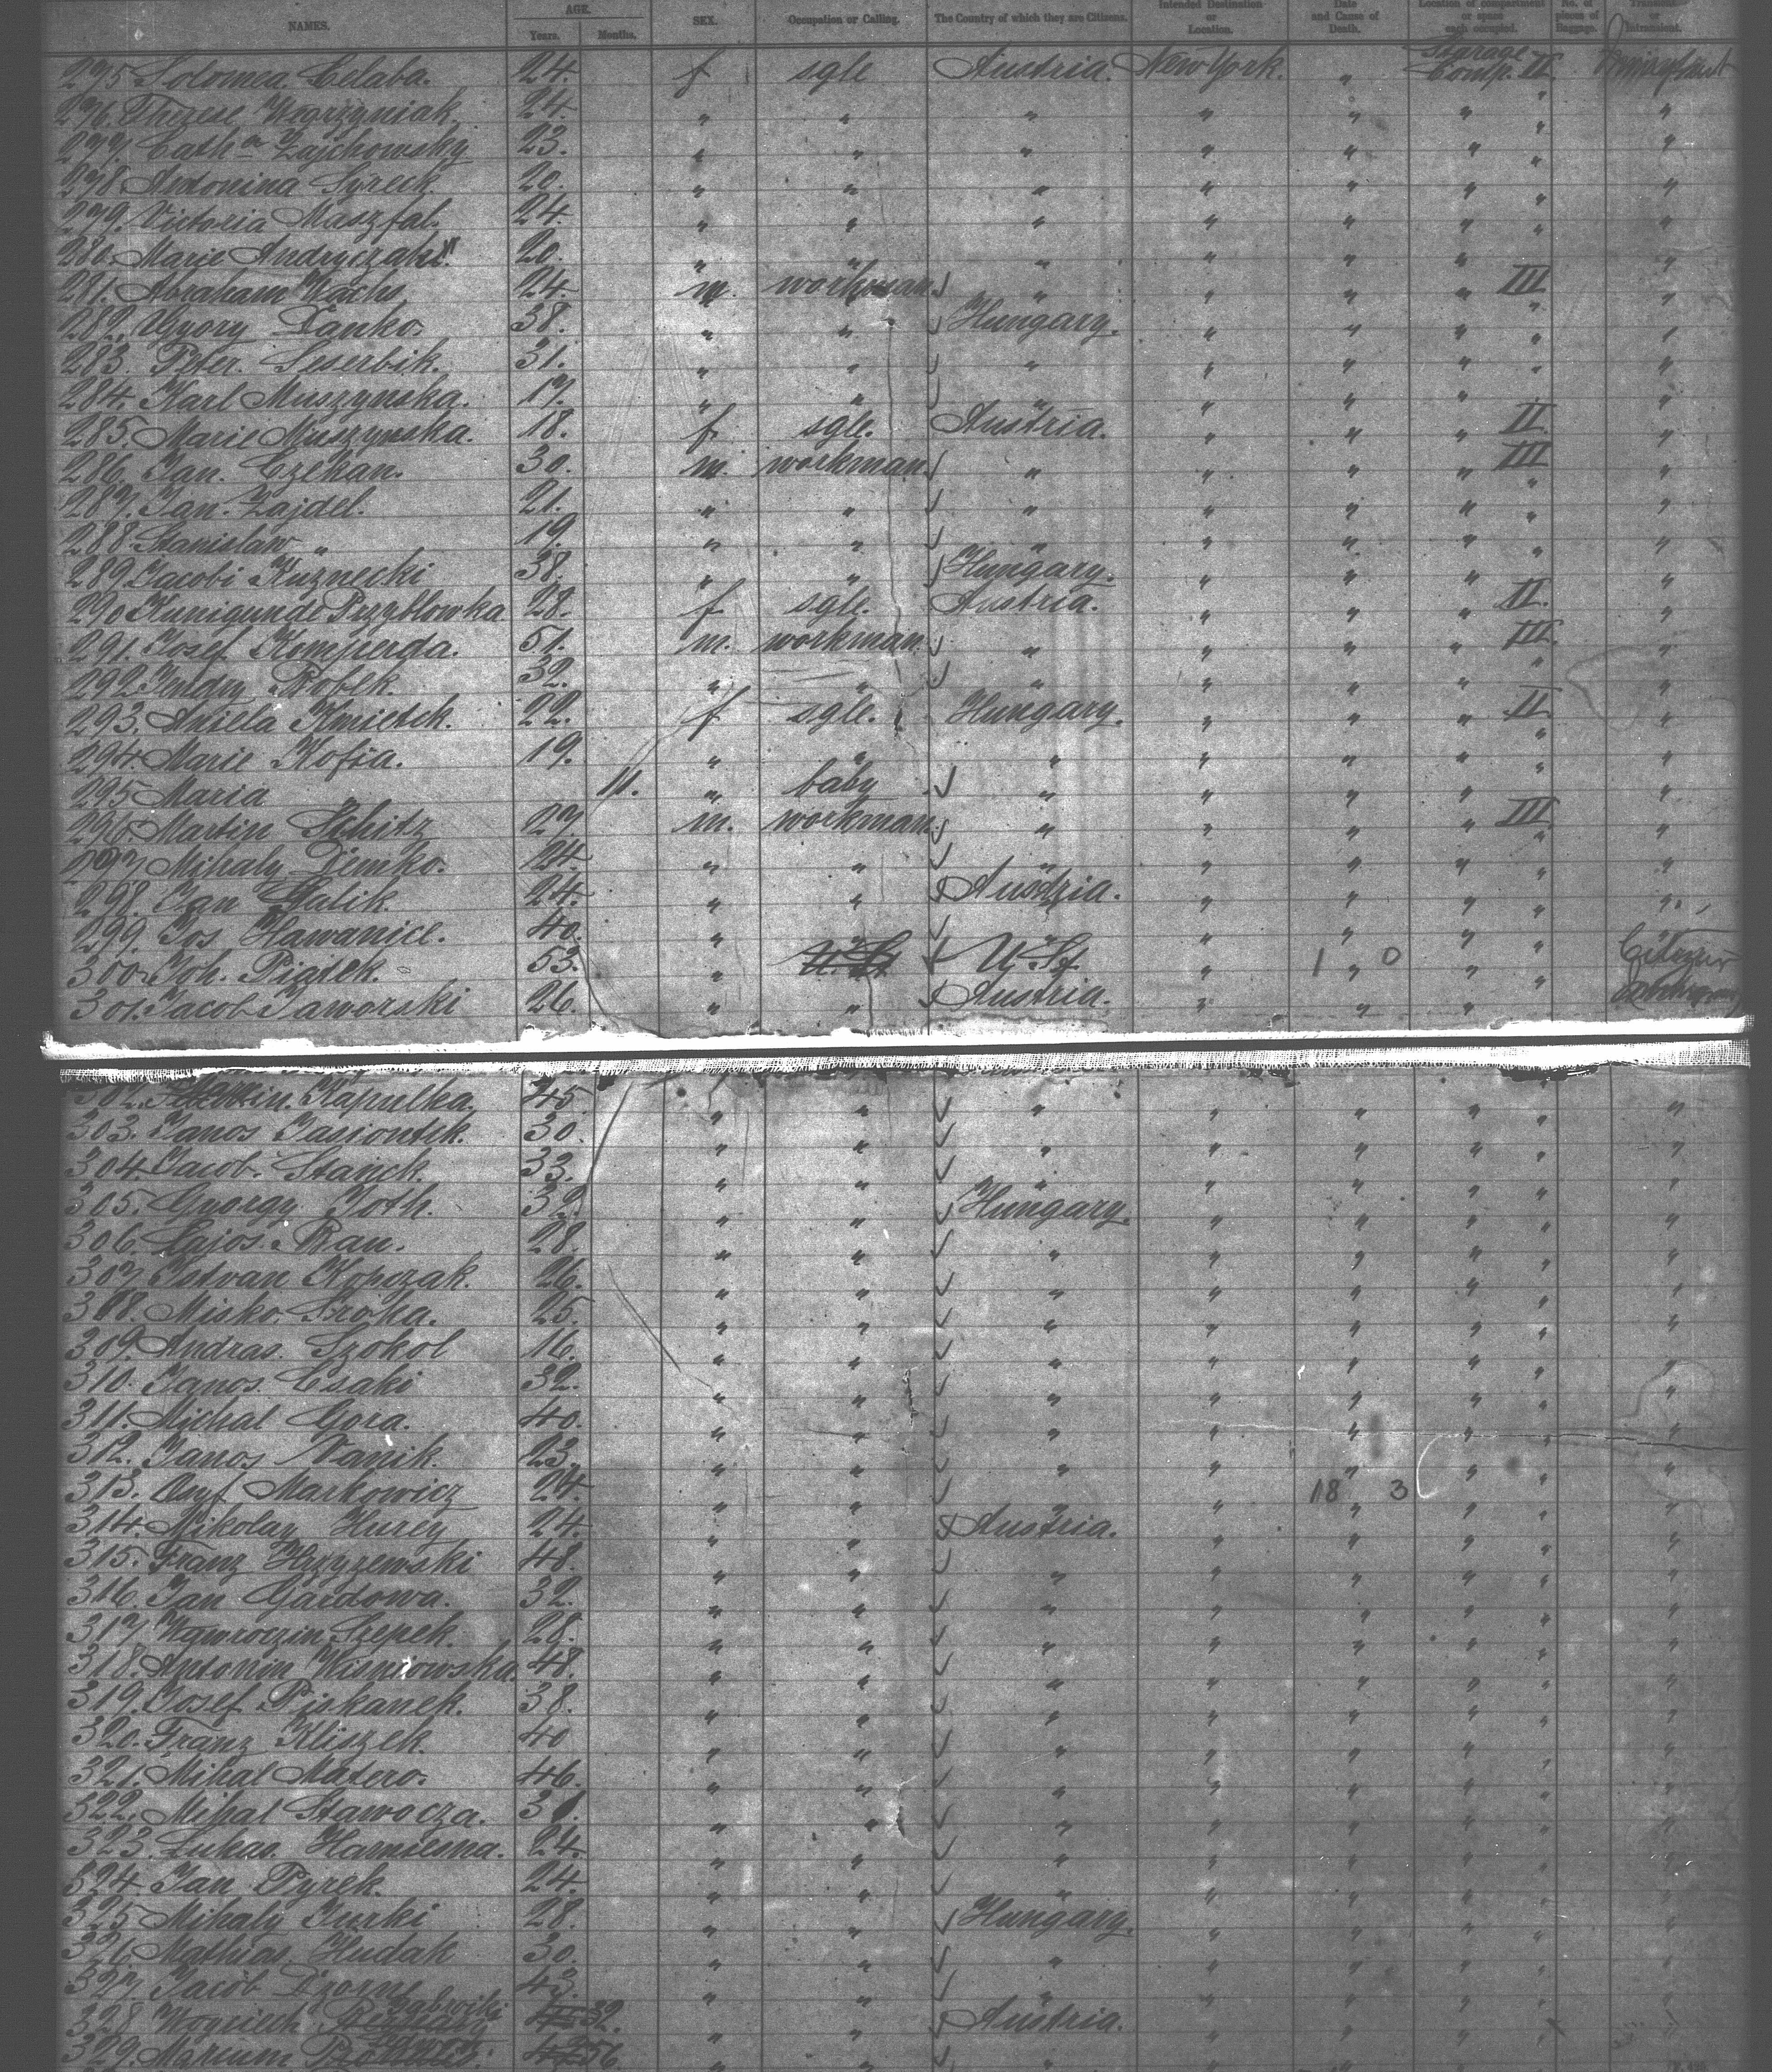 NAMES. AGE. Years. Months. SEX. Occupation or Calling. The Country of which they are Citizens. Intended Destination or Location. Date and Cause of Death. Location of compartment or space each occupied. No. of pieces of Baggage. Transient or Intransient.
275 Solomea Celaba. 24. f sgle Austria. New York. " Comp. II
276. Therese Wegrzyniak. 24. " " " " " " " "
277. Cath Zajchowsky 23. " " " " " " " "
278 Andonina Syreck. 20. " " " " " " " "
279. Victoria Maszfal. 24. " " " " " " " "
280. Marie Andryczak 20. " " " " " " " "
281. Abraham Wachs 24. m. workman " " " III "
282. Gyory Danko. 38. " " Hungary. " " " " "
283. Peter. Seserbik. 31. " " " " " " " "
284. Karl Muszynska. 17. " " " " " " " "
285. Marie Muszynska. 18. f sgle. Austria. " " " II "
286. Jan. Czekan. 30. m. workman " " " " III "
287. Jan. Zajdel. 21. " " " " " " " "
288. Stanislaw " 19. " " " " " " " "
289. Jacobi Kuznecki 38. " " Hungary. " " " " "
290 Kunigunde Przyblowka 28. f sgle. Austria. " " " II. "
291. Josef Komperda. 51. m. workman. " " " " III. "
292 Jendry Bobek. 32. " " " " " " " "
293. Aniela Kmietek. 22. f sgle. Hungary. " " " II "
294. Marie Kofia. 19. " " " " " " " "
295 Maria 11. " baby " " " " " "
296. Martin Schitz 27 m. workman. " " " " III "
297 Mihaly Demko. 24. " " " " " " " "
298. Jan Galik. 24. " " Austria. " " " " "
299. Jos Hawanice. 40. " " " " " " " "
300. Joh. Piatek. 53. " U. St. 1 " 0 " " Citizen
301. Jacob Jaworski 26. " " Austria. " " " "
302. Kapulka. 45 " " " " " " " "
303. Janos Jasiontek. 30. " " " " " " " "
304. Jacob. Stanek. 33. " " " " " " " "
305. Gyorgy Toth. 32 " " Hungary. " " " " "
306. Lajos Ban. 28. " " " " " " " "
307 Istvan Kopczak. 26. " " " " " " " "
308. Misko. Sroka. 25. " " " " " " " "
309. Andras. Szokol 16. " " " " " " " "
310. Janos. Csaki 32. " " " " " " " "
311. Michal Gora. 40. " " " " " " " "
312. Janos Vanik. 23. " " " " " " " "
313. Markowicz 24. " " " " 18 " 3 " " "
314. Mikolay Hurey 24. " " Austria. " " " " "
315. Franz Hyzyzewski 48. " " " " " " " "
316. Jan Gaidowa. 32. " " " " " " " "
317 Wawroczin Szepek. 28. " " " " " " " "
318. Antonin Wisniowska. 48. " " " " " " " "
319. Josef Piskanek. 38. " " " " " " " "
320. Franz Kliszek. 40 " " " " " " " "
321. Mihal Matero. 46. " " " " " " " "
322. Mihal Stawocza. 31. " " " " " " " "
323. Lukas. Harniesna. 24. " " " " " " " "
324. Jan Pyrek. 24. " " " " " " " "
325 Mihaly Jurki 28. " " Hungary. " " " " "
326. Mathias Hudak 30. " " " " " " " "
327. Jacob 43. " " " " " " " "
328 Woyciech 32. " " Austria. " " " " "
329. 56. " " " " " " " "